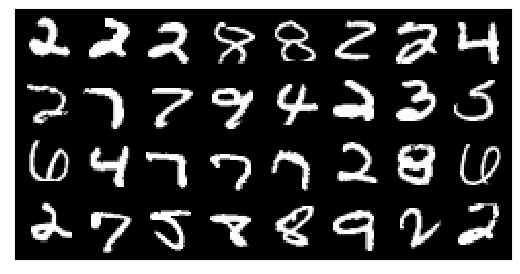 2 2 2 8 8 2 2 4
2 7 7 9 4 2 3 5
6 4 7 7 7 2 8 6
2 7 5 8 8 9 2 2